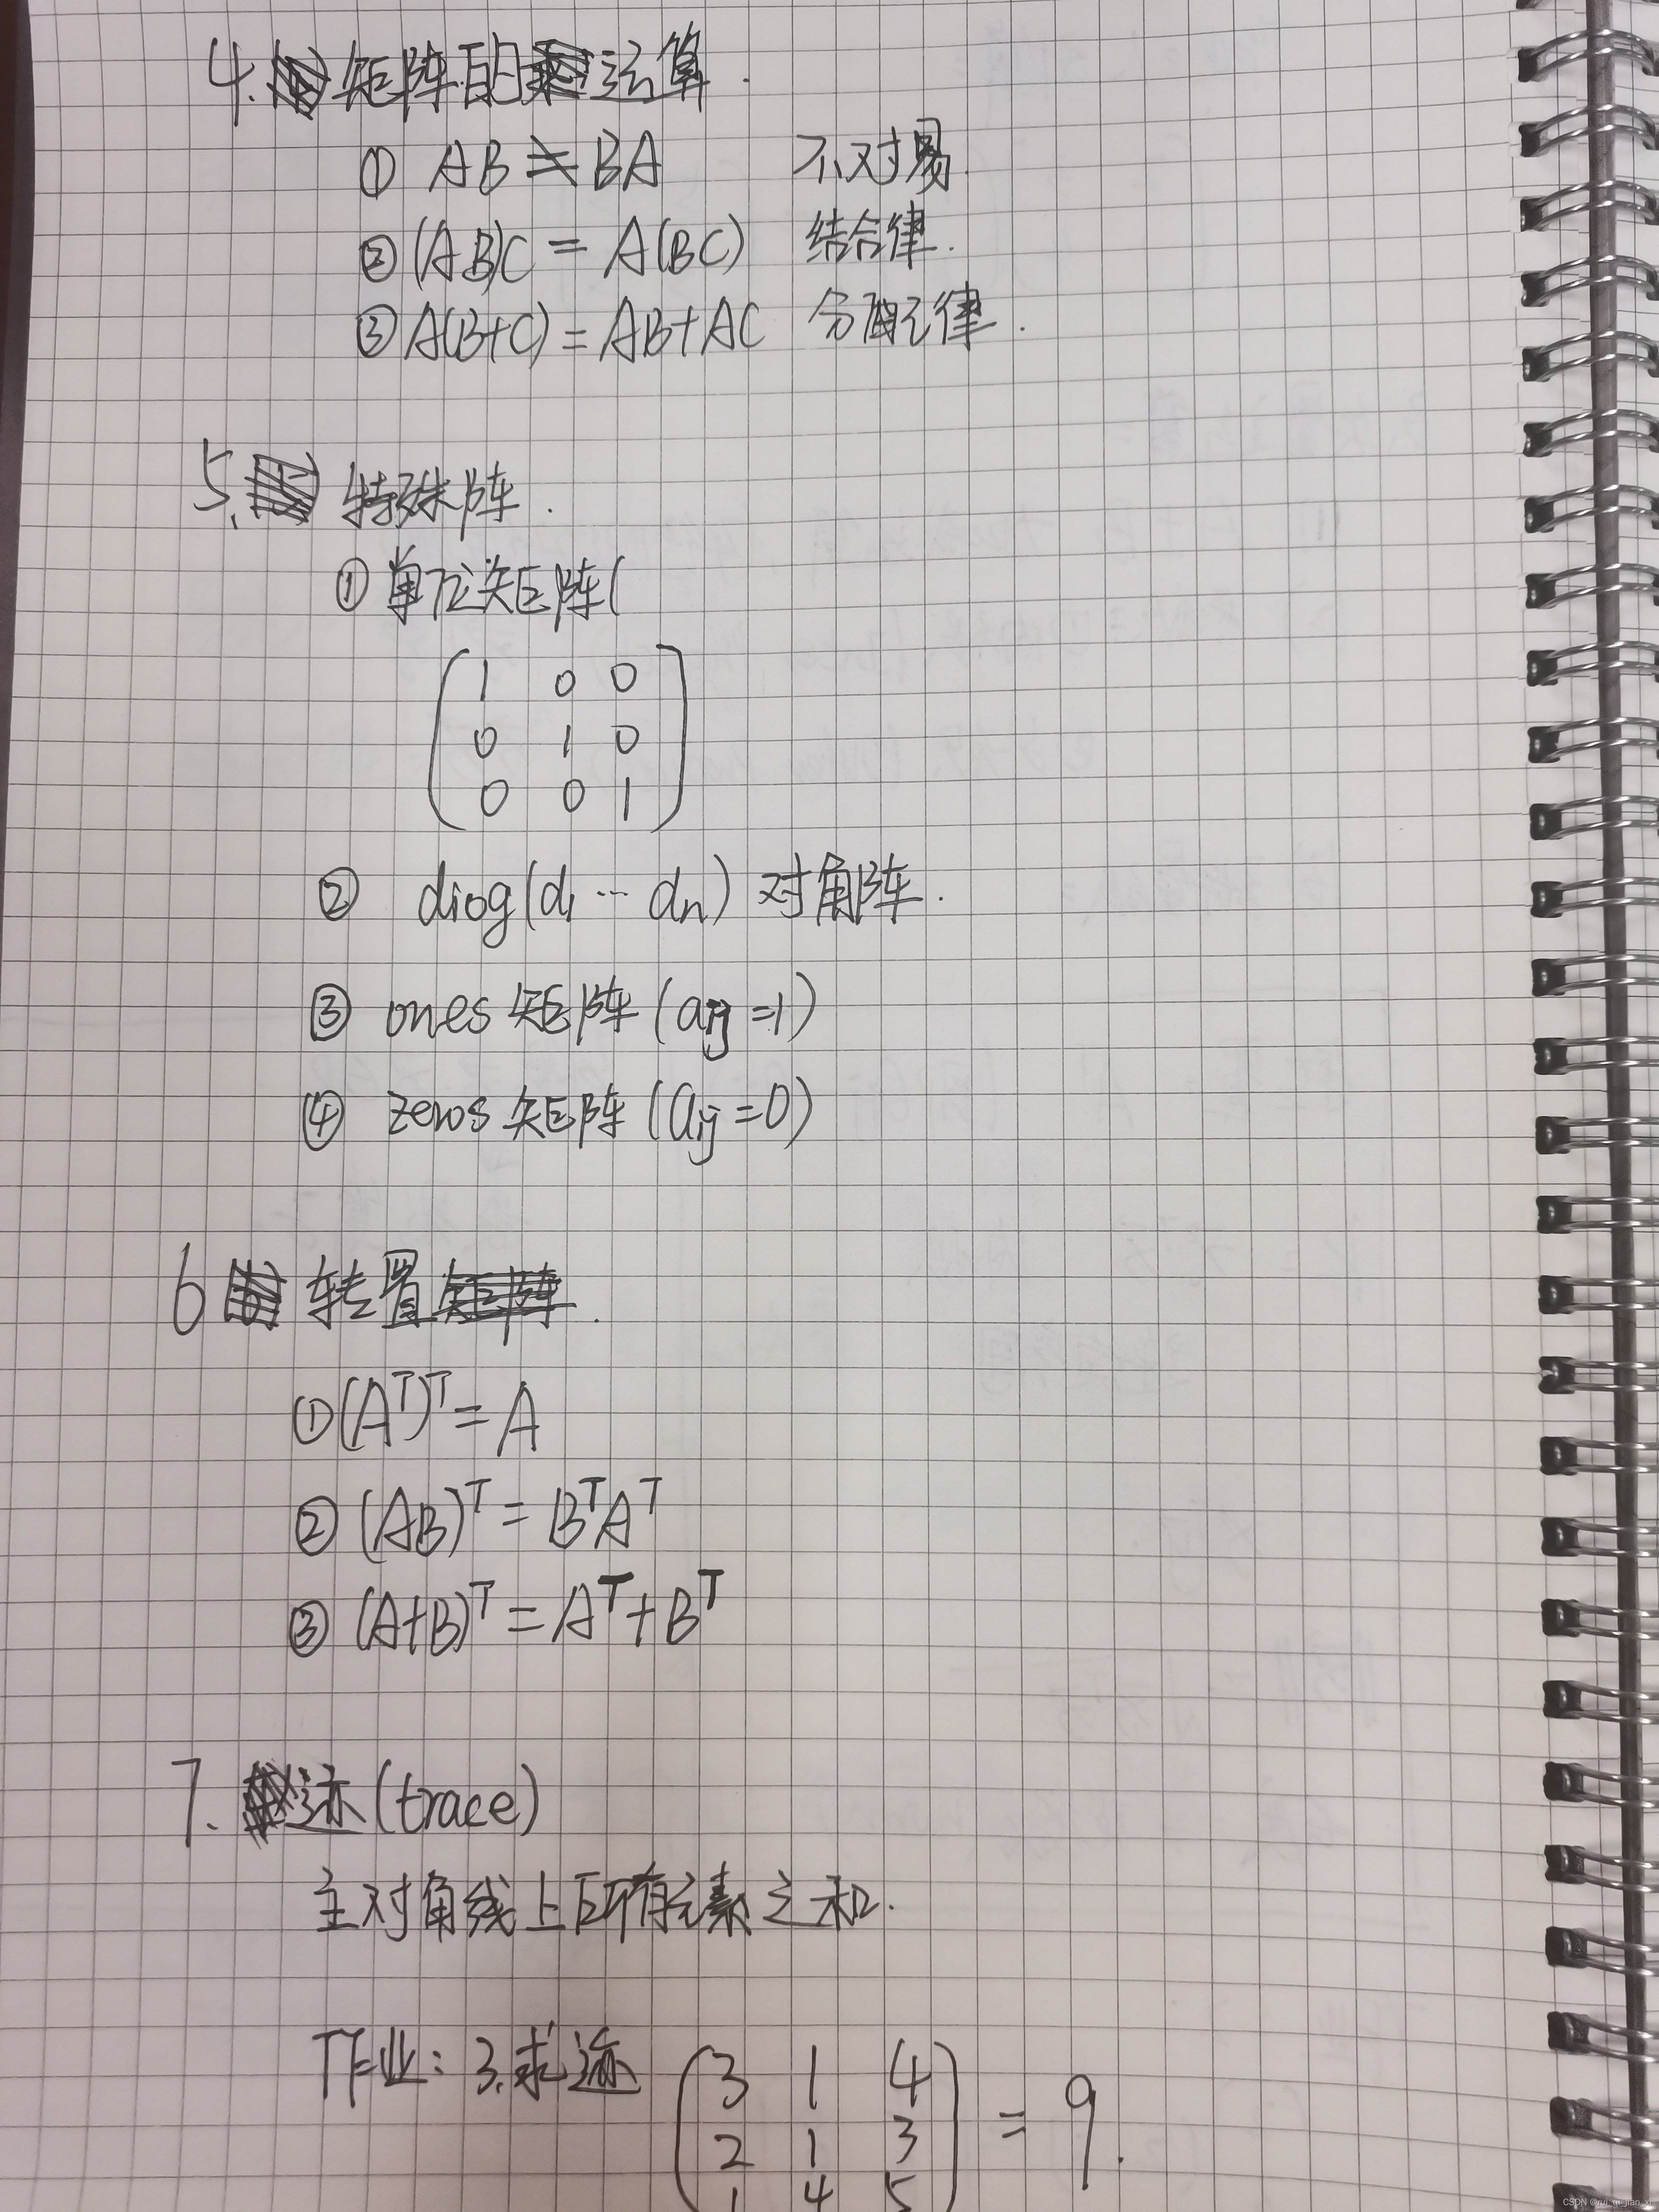 4. 矩阵的运算.
① AB ≠ BA 不对易.
② (AB)C = A(BC) 结合律.
③ A(B+C) = AB+AC 分配律.
5. 特殊阵.
① 单位矩阵(
( 1 0 0
0 1 0
0 0 1 )
② diog(d₁ ⋯ dₙ) 对角阵.
③ ones 矩阵 (aᵢⱼ = 1)
④ zeros 矩阵 (aᵢⱼ = 0)
6 转置矩阵.
① (Aᵀ)ᵀ = A
② (AB)ᵀ = BᵀAᵀ
③ (A+B)ᵀ = Aᵀ+Bᵀ
7. 迹(trace)
主对角线上所有元素之和.
作业: 3.求迹 ( 3 1 4
2 1 3
1 4 5 ) = 9.